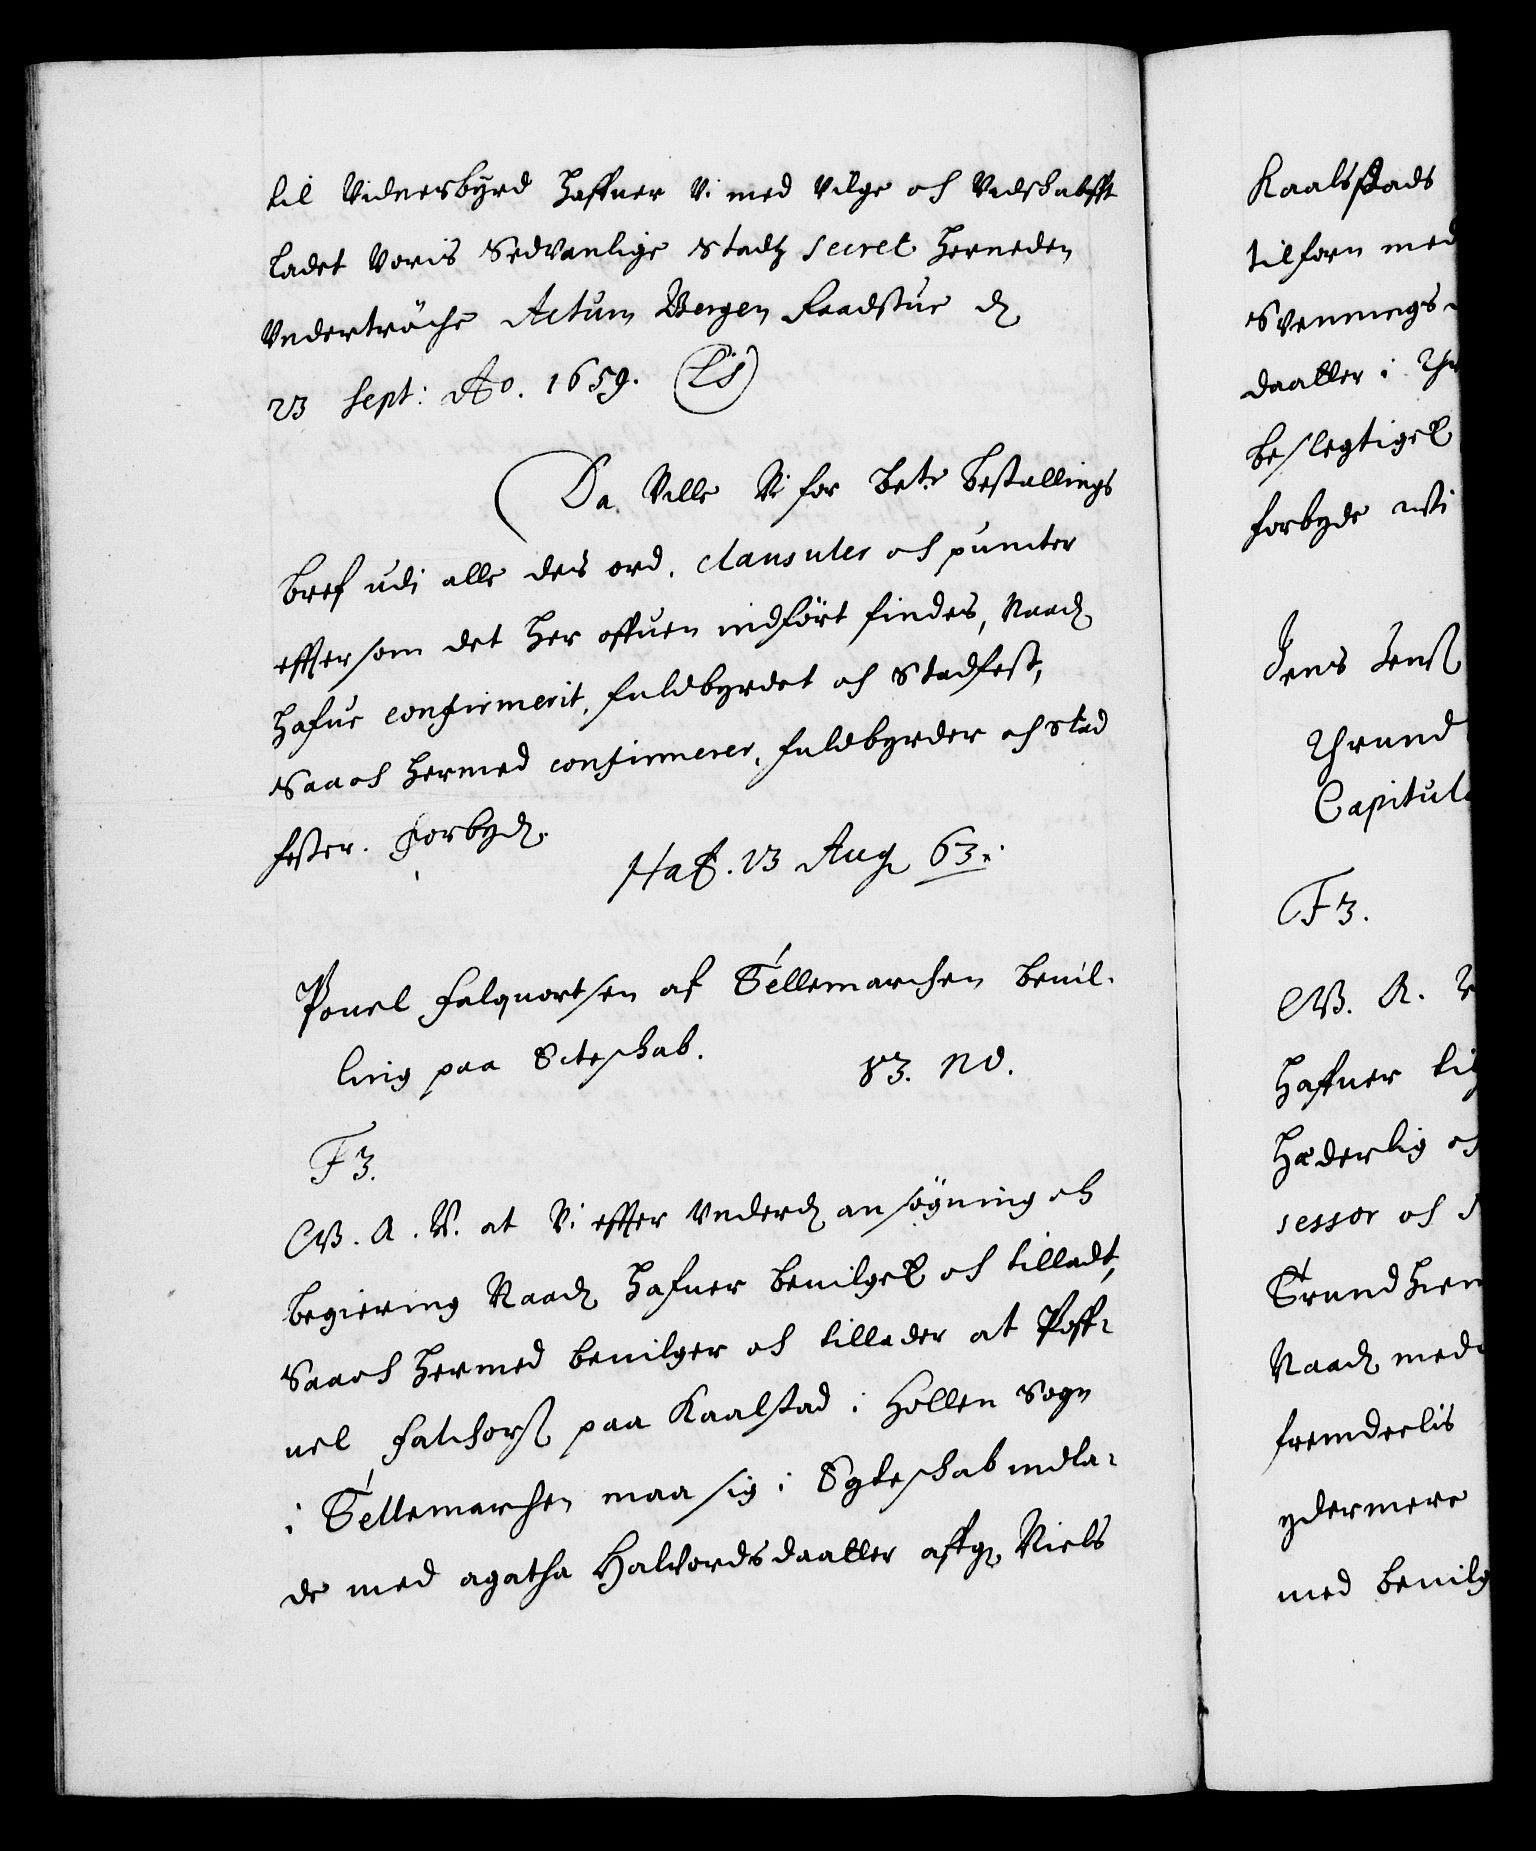 til Vidnesbyrd Haffuer Vi med Vilge och Vidskabfft
ladet Voris Sedvanlige Stadz secret Herneden
Vndertröche Actum Bergen Raadstue d
23 Sept: Ao. 1659. (LS)
Da Ville Vi for bete bestallings
bref udi alle des ord, clausuler och puncter
effter som det her offuen indfört findes, Naad
hafue confirmerit, fuldbyrdet och Stadfest,
Saa och hermed confirmerer, fuldbyrder och stad
fester. Forbyd.
Haf. 23 Aug 63.
Pouel Falquortsen af Tellemarchen beuil-
ling paa Ecteschab.
F 3.
C5. A. V. at Vi effter Underd ansögning och
begiering Naad hafuer beuilget och tilladt,
Saa och hermed beuilger och tillader at Poff-
uel Falchors paa Kaalstad i Hollen Sogn
i Tellemarchen maa sig i Egteschab indla-
de med Agatha Halvordsdaatter affg Niels
Kaalstads
tilforn med
Svennings
daatter i
beslegtiget
forbyde
Jens Jens
Thrund
Capitul
F 3.
haffuer
Hæderlig och
sessor och
Trundhiem
Naad med
fremdeelis
ydermere
med beuilg